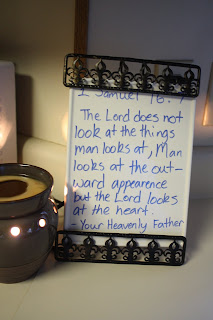 I Samuel 16:7
The Lord does not
look at the things
man looks at, Man
looks at the out-
ward appearence
but the Lord looks
at the heart.
- Your Heavenly Father